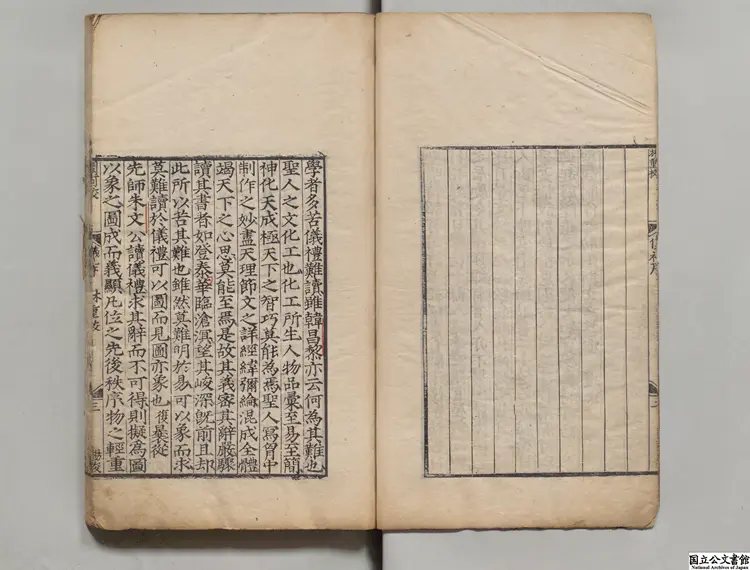 學者多苦儀禮難讀雖韓昌黎亦云何為其難也
聖人之文化工也化工所生人物品彙至易至簡
神化天成極天下之智巧莫能為焉聖人寫胷中
制作之妙盡天理節文之詳經緯彌綸混成全體
竭天下之心思莫能至焉是故其義密其辭嚴驟
讀其書者如登泰華臨滄溟望其峻深既前且却
此所以苦其難也雖然莫難明於易可以象而求
莫難讀於儀禮可以圖而見圖亦象也復曩從
先師朱文公讀儀禮求其辭而不可得則擬為圖
以象之圖成而義顯凡位之先後秩序物之輕重
林重校
三
国立公文書館
National Archives of Japan